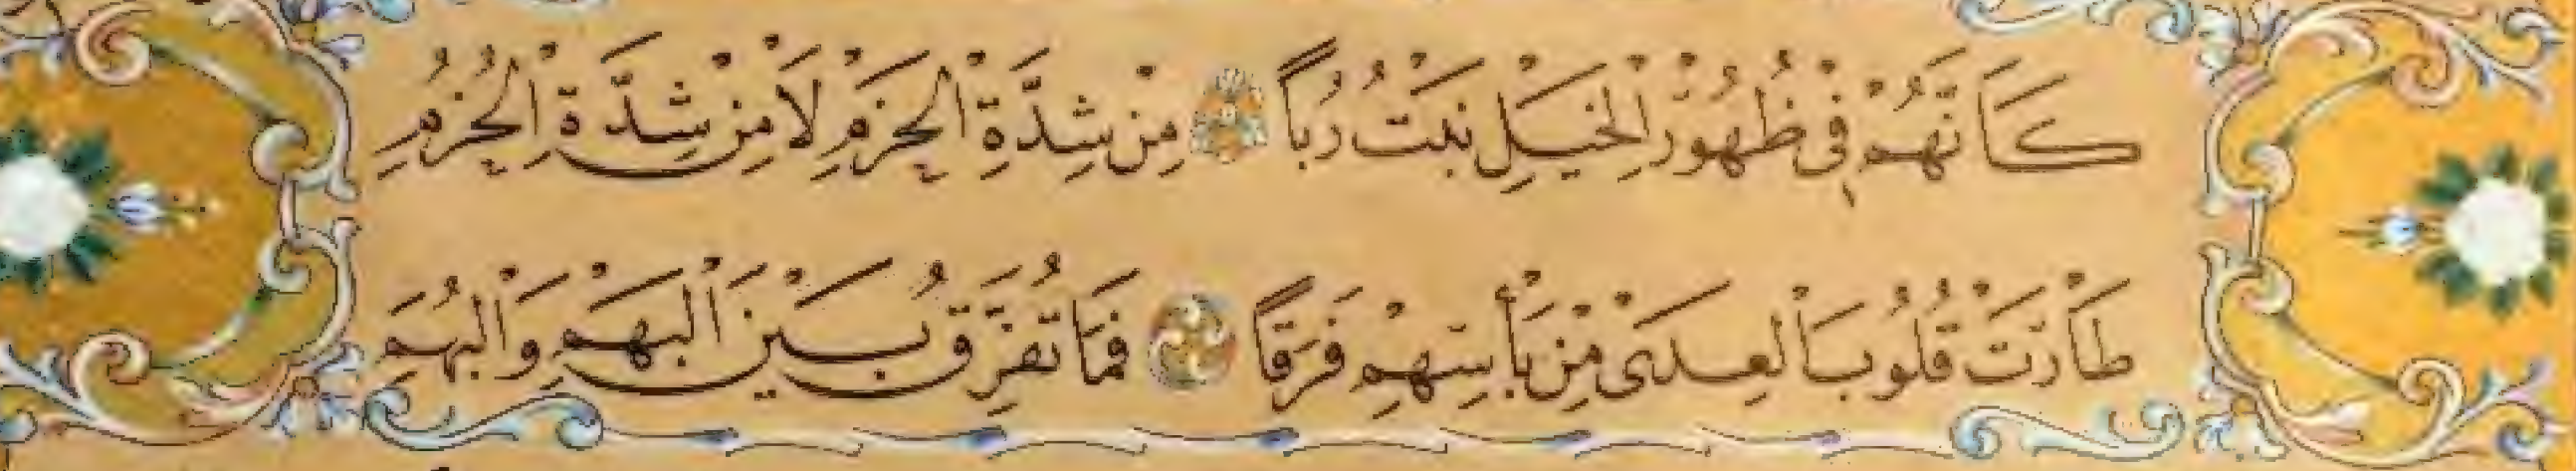 كَأَنَّهُمْ فِي ظُهُورِ الْخَيْلِ نَبْتُ رُبًا مِنْ شِدَّةِ الْحَزْمِ لَا مِنْ شِدَّةِ الْحُزُمِ
طَارَتْ قُلُوبُ الْعِدَى مِنْ بَأْسِهِمْ فَرَقًا فَمَا تُفَرِّقُ بَيْنَ الْبَهْمِ وَالْبُهَمِ